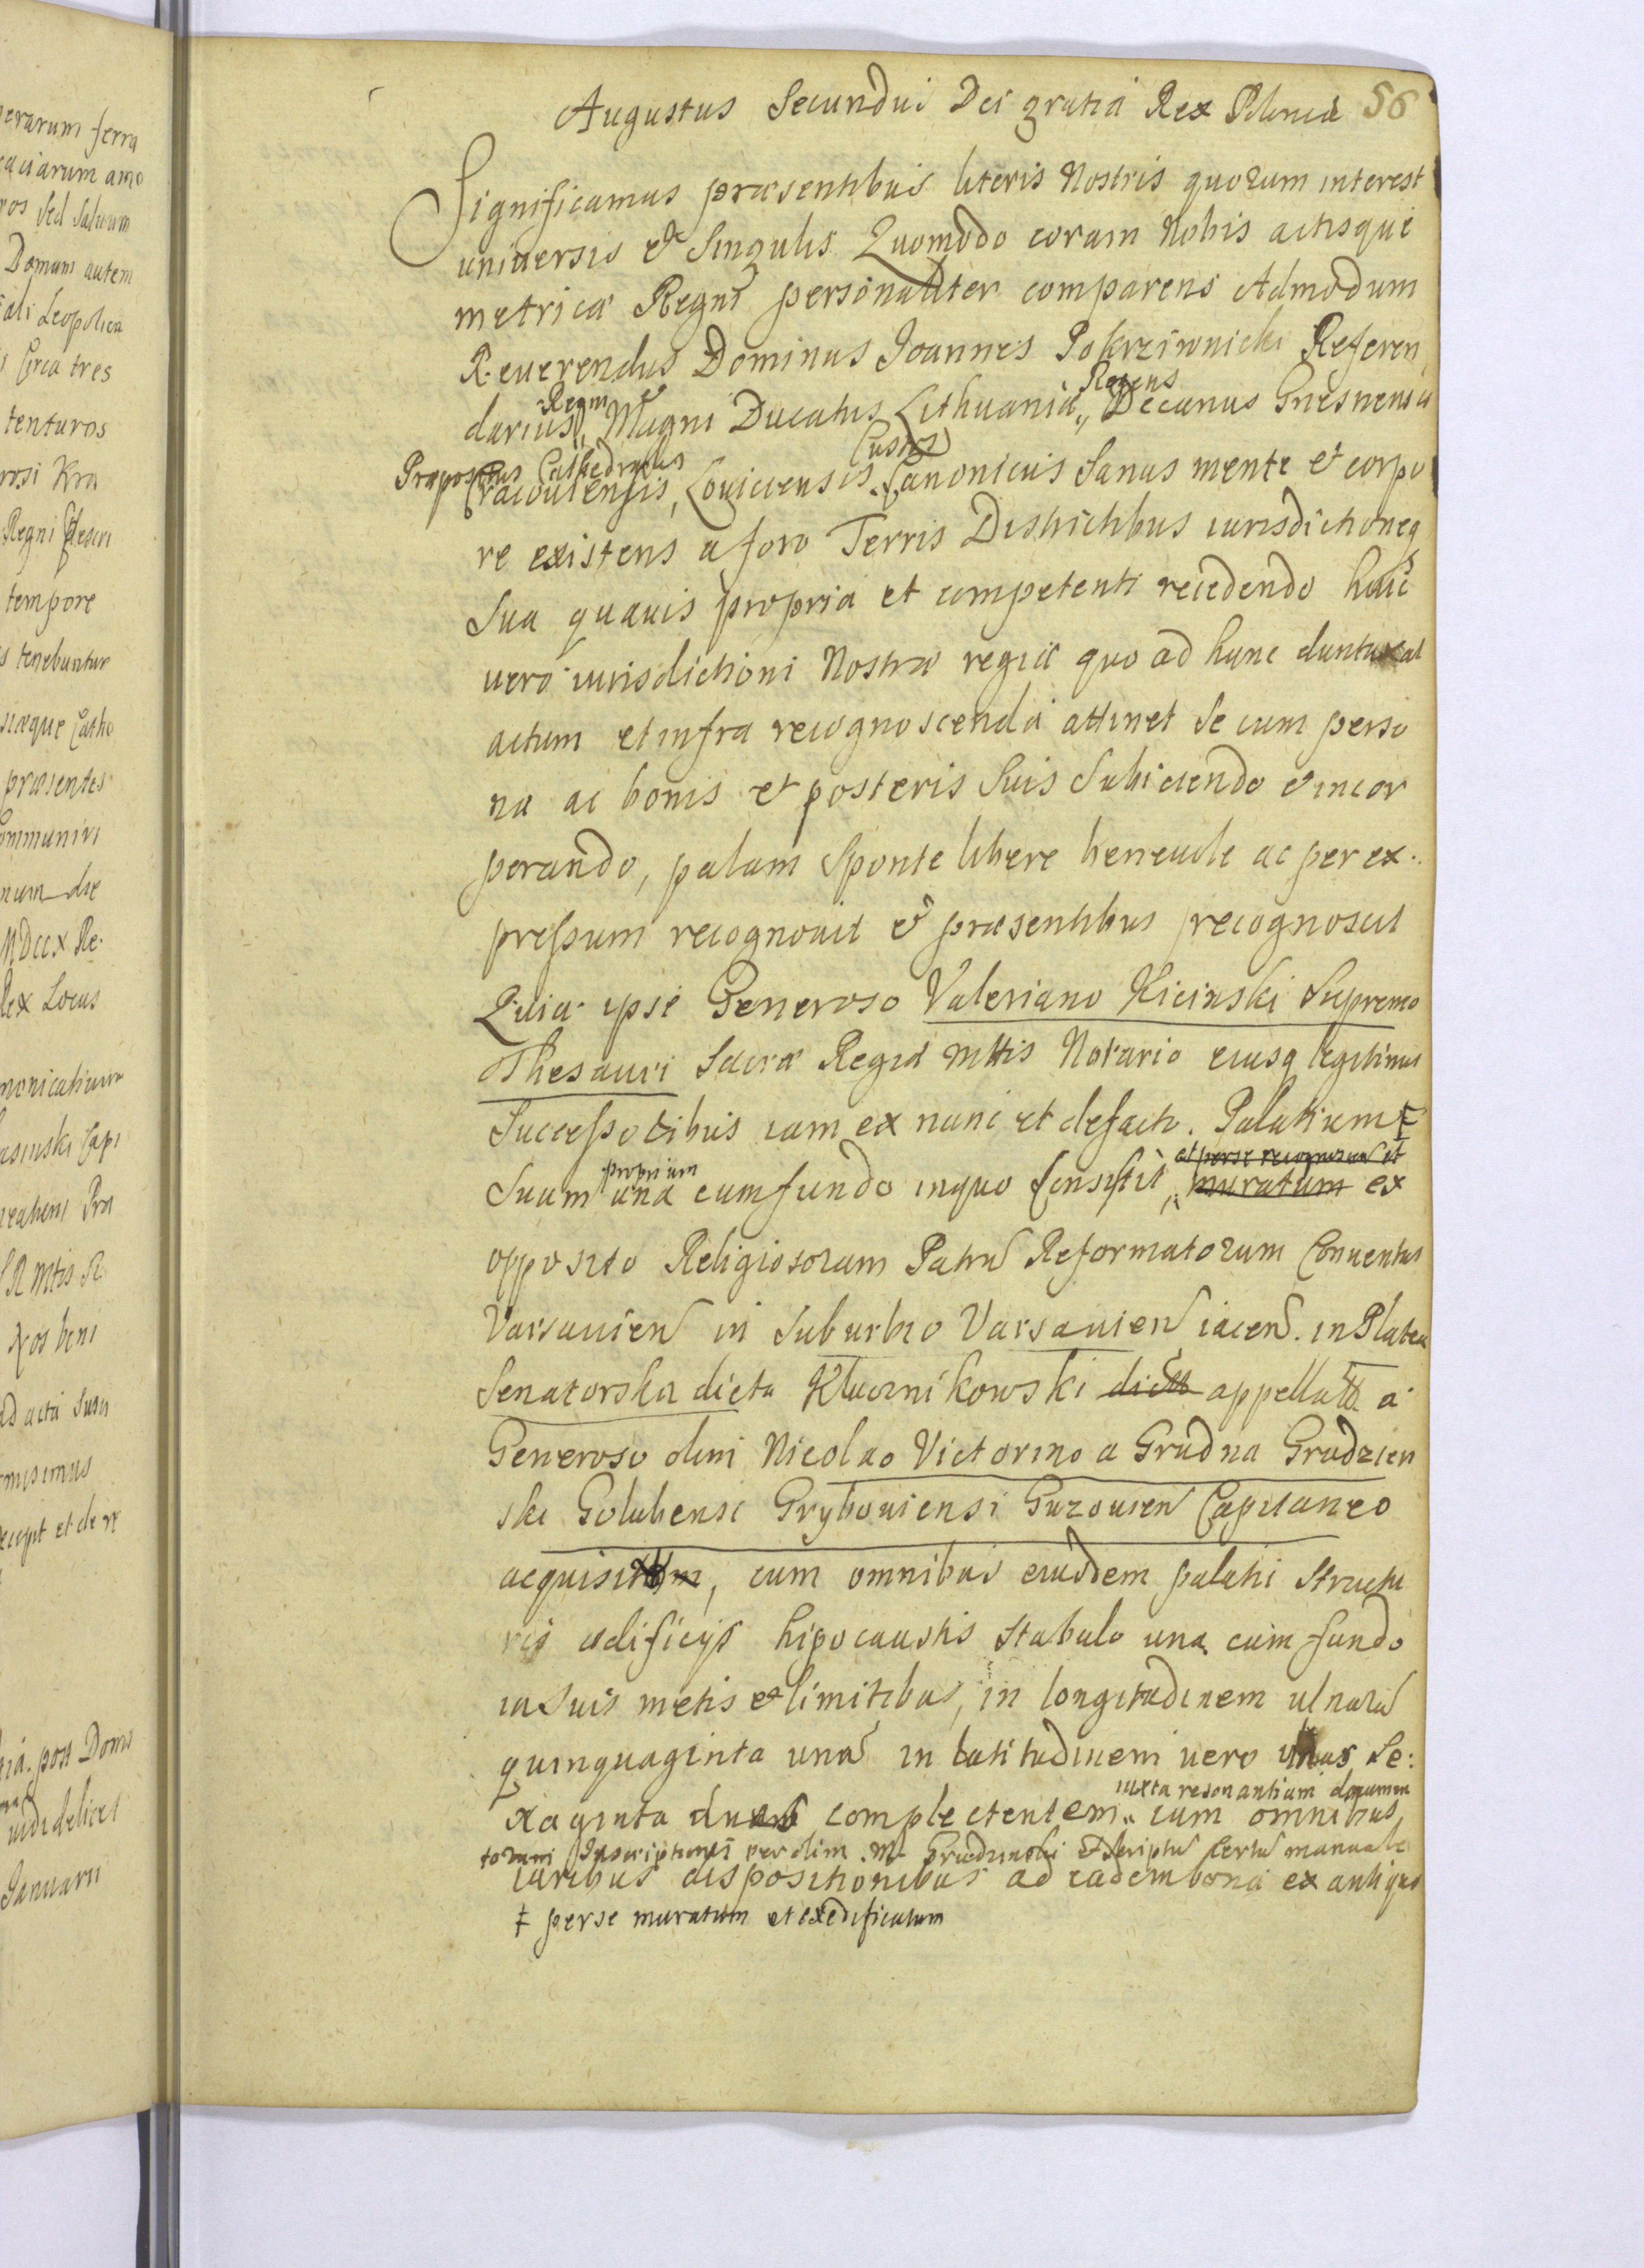 erarum ferra
aciarum amo
ros sed saluam
Domum autem
ali Leopolien
Circa tres
tenturos
rosi Kra
Regni
tempore
s tenebuntur
siæque Catho
præsentes
ommuniri
num die
MDccx Re
Rex Locus
monicatiuum
asinski Capi
Pra
SR Mtis
ad acta
misimus
ecepit et de re
post Doms
uidelicet
Januarii
56
Augustus Secundus Dei gratia Rex Poloniæ
Significamus præsentibus literis Nostris quorum interest
uniuersis et Singulis Quomodo coram Nobis actisque
metrices Regni personaliter comparens Admodum
Reuerendus Dominus Joannes Pokrziwnicki Referen
Regni et Regens
darius Magni Ducatus Lithuaniæ, Decanus Gnesnensis
Præpositus Cathedralis Custos
Cracouiensis, Louiciensis Canonicus Sanus mente et corpo
re existens a foro Terris Districtibus iurisdictioneq
Sua quauis propria et competenti recedendo huic
uero iurisdictioni Nostræ regiæ quo ad hunc duntaxat
actum et infra recognoscenda attinet Se cum perso
na ac bonis et posteris Suis Subiiciendo et incor
porando, palam Sponte libere beneuole ac per ex
pressum recognouit et præsentibus recognoscit
Quia ipse Generoso Valeriano Kicinski Supremo
Thesauri Sacræ Regiæ Mttis Notario eiusq legitimis
Successoribus iam ex nunc et defacto. Palatium ‡
proprium ac per se recognoscen et
Suum una cum fundo in quo consistit, muratum ex
opposito Religiosorum Patru Reformatorum Conuentus
Varsauien in Suburbio Varsauien iacen. in Platea
Senatorska dicta Klucznikowski dictu appellatu a
Generoso olim Nicolao Victorino a Grudna Grudzien
ski Golubensi Gryboviensi Guzouien Capitaneo
acquisitum, cum omnibus eiusdem palatii Structu
ris ædificijs hipocaustis Stabulo una cum fundo
in Suis metis et limitibus, in longitudinem ulnaru
quinquaginta una in latitudinem uero ulnas Se:
iuxta resonantiam documen
xaginta duas complectentem cum omnibus
torum Inscriptionis per olim M. Grudzinski et Scriptu certu manuale
iuribus dispositionibus ad eadem bona ex antiquo
‡ per se muratum et exædificatum